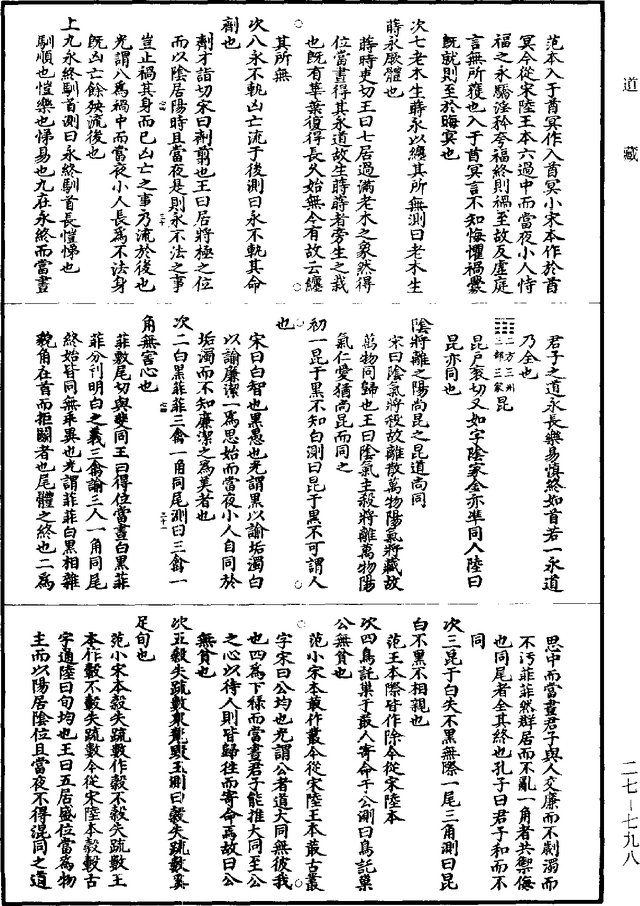 道藏
范本入于首冥作入首冥小宋本作於首
冥今從宋陸王本六過中而當夜小人恃
福之永驕淫矜夸福終則禍至故反虛庭
言無所獲也入于首冥言不知悔懼禍釁
既就則至於晦冥也
次七老木生蒔永以纏其所無測曰老木生
蒔永厥體也
蒔時吏切王曰七居過滿老木之象然得
位當晝得其永道故生蒔蒔者旁生之栽
也既有華葉復得長久始無今有故云纏
其所無
次八永不軌凶亡流于後測曰永不軌其命
劑也
劑才詣切宋曰劑翦也王曰居將極之位
而以陰居陽時且當夜是則永不法之事
豈止禍其身而已凶亡之事乃流於後也
光謂八為禍中而當夜小人長為不法身
既凶亡餘殃流後也
上九永終馴首測曰永終馴首長愷悌也
馴順也愷樂也悌易也九在永終而當晝
君子之道永長樂易慎終如首若一永道
乃全也
二方三州三部三家昆
昆戶袞切又如字陰家金亦準同人陸曰
昆亦同也
陰將離之陽尚昆之昆道尚同
宋曰陰氣將殺故離散萬物陽氣將藏故
萬物同歸也王曰陰氣主殺將離萬物陽
氣仁愛猶尚昆而同之
初一昆于黑不知白測曰昆于黑不可謂人
也
宋曰白智也黑愚也光謂黑以諭垢濁白
以諭廉潔一為思始而當夜小人自同於
垢濁而不知廉潔之為美者也
次二白黑菲菲三禽一角同尾測曰三禽一
角無害心也
菲數尾切與斐同王曰得位當晝白黑菲
菲分別明白之義三禽諭三人一角同尾
終始皆同無乖異也光謂菲菲白黑相雜
貌角在首而拒鬭者也尾體之終也二為
思中而當晝君子與人交廉而不劌濁而
不污菲菲然群居而不亂一角者共禦侮
也同尾者全其終也孔子曰君子和而不
同
次三昆于白失不黑無際一尾三角測曰昆
白不黑不相親也
范王本際皆作除今從宋陸本
次四鳥託巢于叢人寄命于公測曰鳥託巢
公無貧也
范小宋本叢作叢今從宋陸王本叢古叢
字宋曰公均也光謂公者道大同無彼我
也四為下祿而當晝君子能推大同至公
之心以待人則皆歸往而寄命焉故曰公
無貧也
次五穀失疏數眾氂毀玉測曰穀失疏數奚
足旬也
范小宋本穀失疏數作穀不穀失疏數王
本作轂不轂失疏數今從宋陸本穀轂古
字通陸曰旬均也王曰五居盛位當為物
主而以陽居陰位且當夜不得混同之道
二七—七九八